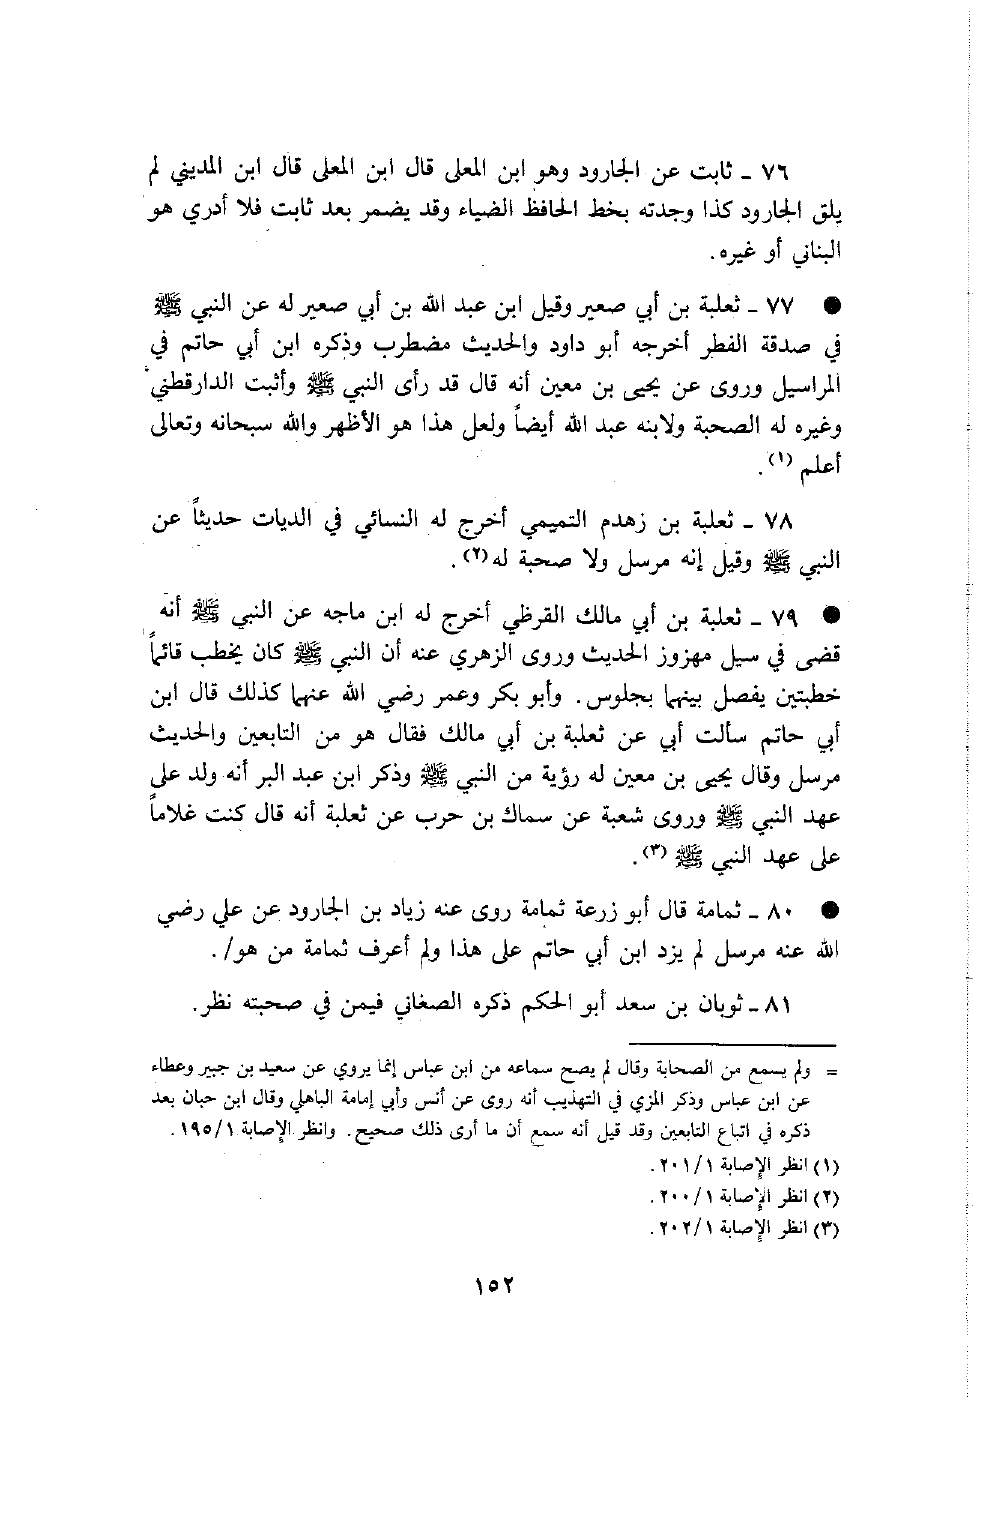 ٧٦ ـ ثابت عن الجارود وهو ابن المعلى قال ابن المعلى قال ابن المديني لم
يلق الجارود كذا وجدته بخط الحافظ الضياء وقد يضمر بعد ثابت فلا أدري هو
البناني أو غيره.
● ٧٧ ـ ثعلبة بن أبي صعير وقيل ابن عبد الله بن أبي صعير له عن النبي ﷺ
في صدقة الفطر أخرجه أبو داود والحديث مضطرب وذكره ابن أبي حاتم في
المراسيل وروى عن يحيى بن معين أنه قال قد رأى النبي ﷺ وأثبت الدارقطني
وغيره له الصحبة ولابنه عبد الله أيضاً ولعل هذا هو الأظهر والله سبحانه وتعالى
أعلم (١).
٧٨ ـ ثعلبة بن زهدم التميمي أخرج له النسائي في الديات حديثاً عن
النبي ﷺ وقيل إنه مرسل ولا صحبة له(٢).
● ٧٩ ـ ثعلبة بن أبي مالك القرظي أخرج له ابن ماجه عن النبي ﷺ أنه
قضى في سيل مهزوز الحديث وروى الزهري عنه أن النبي ﷺ كان يخطب قائماً
خطبتين يفصل بينهما بجلوس. وأبو بكر وعمر رضي الله عنهما كذلك قال ابن
أبي حاتم سألت أبي عن ثعلبة بن أبي مالك فقال هو من التابعين والحديث
مرسل وقال يحيى بن معين له رؤية من النبي ﷺ وذكر ابن عبد البر أنه ولد على
عهد النبي ﷺ وروى شعبة عن سماك بن حرب عن ثعلبة أنه قال كنت غلاماً
على عهد النبي ﷺ (٣).
● ٨٠ ـ ثمامة قال أبو زرعة ثمامة روى عنه زياد بن الجارود عن علي رضي
الله عنه مرسل لم يزد ابن أبي حاتم على هذا ولم أعرف ثمامة من هو/.
٨١ ـ ثوبان بن سعد أبو الحكم ذكره الصغاني فيمن في صحبته نظر.
= ولم يسمع من الصحابة وقال لم يصح سماعه من ابن عباس إنما يروي عن سعيد بن جبير وعطاء
عن ابن عباس وذكر المزي في التهذيب أنه روى عن أنس وأبي إمامة الباهلي وقال ابن حبان بعد
ذكره في اتباع التابعين وقد قيل أنه سمع أن ما أرى ذلك صحيح. وانظر الإصابة ١/ ١٩٥.
(١) انظر الإصابة ١/ ٢٠١.
(٢) انظر الإصابة ١/ ٢٠٠.
(٣) انظر الإصابة ١/ ٢٠٢.
١٥٢